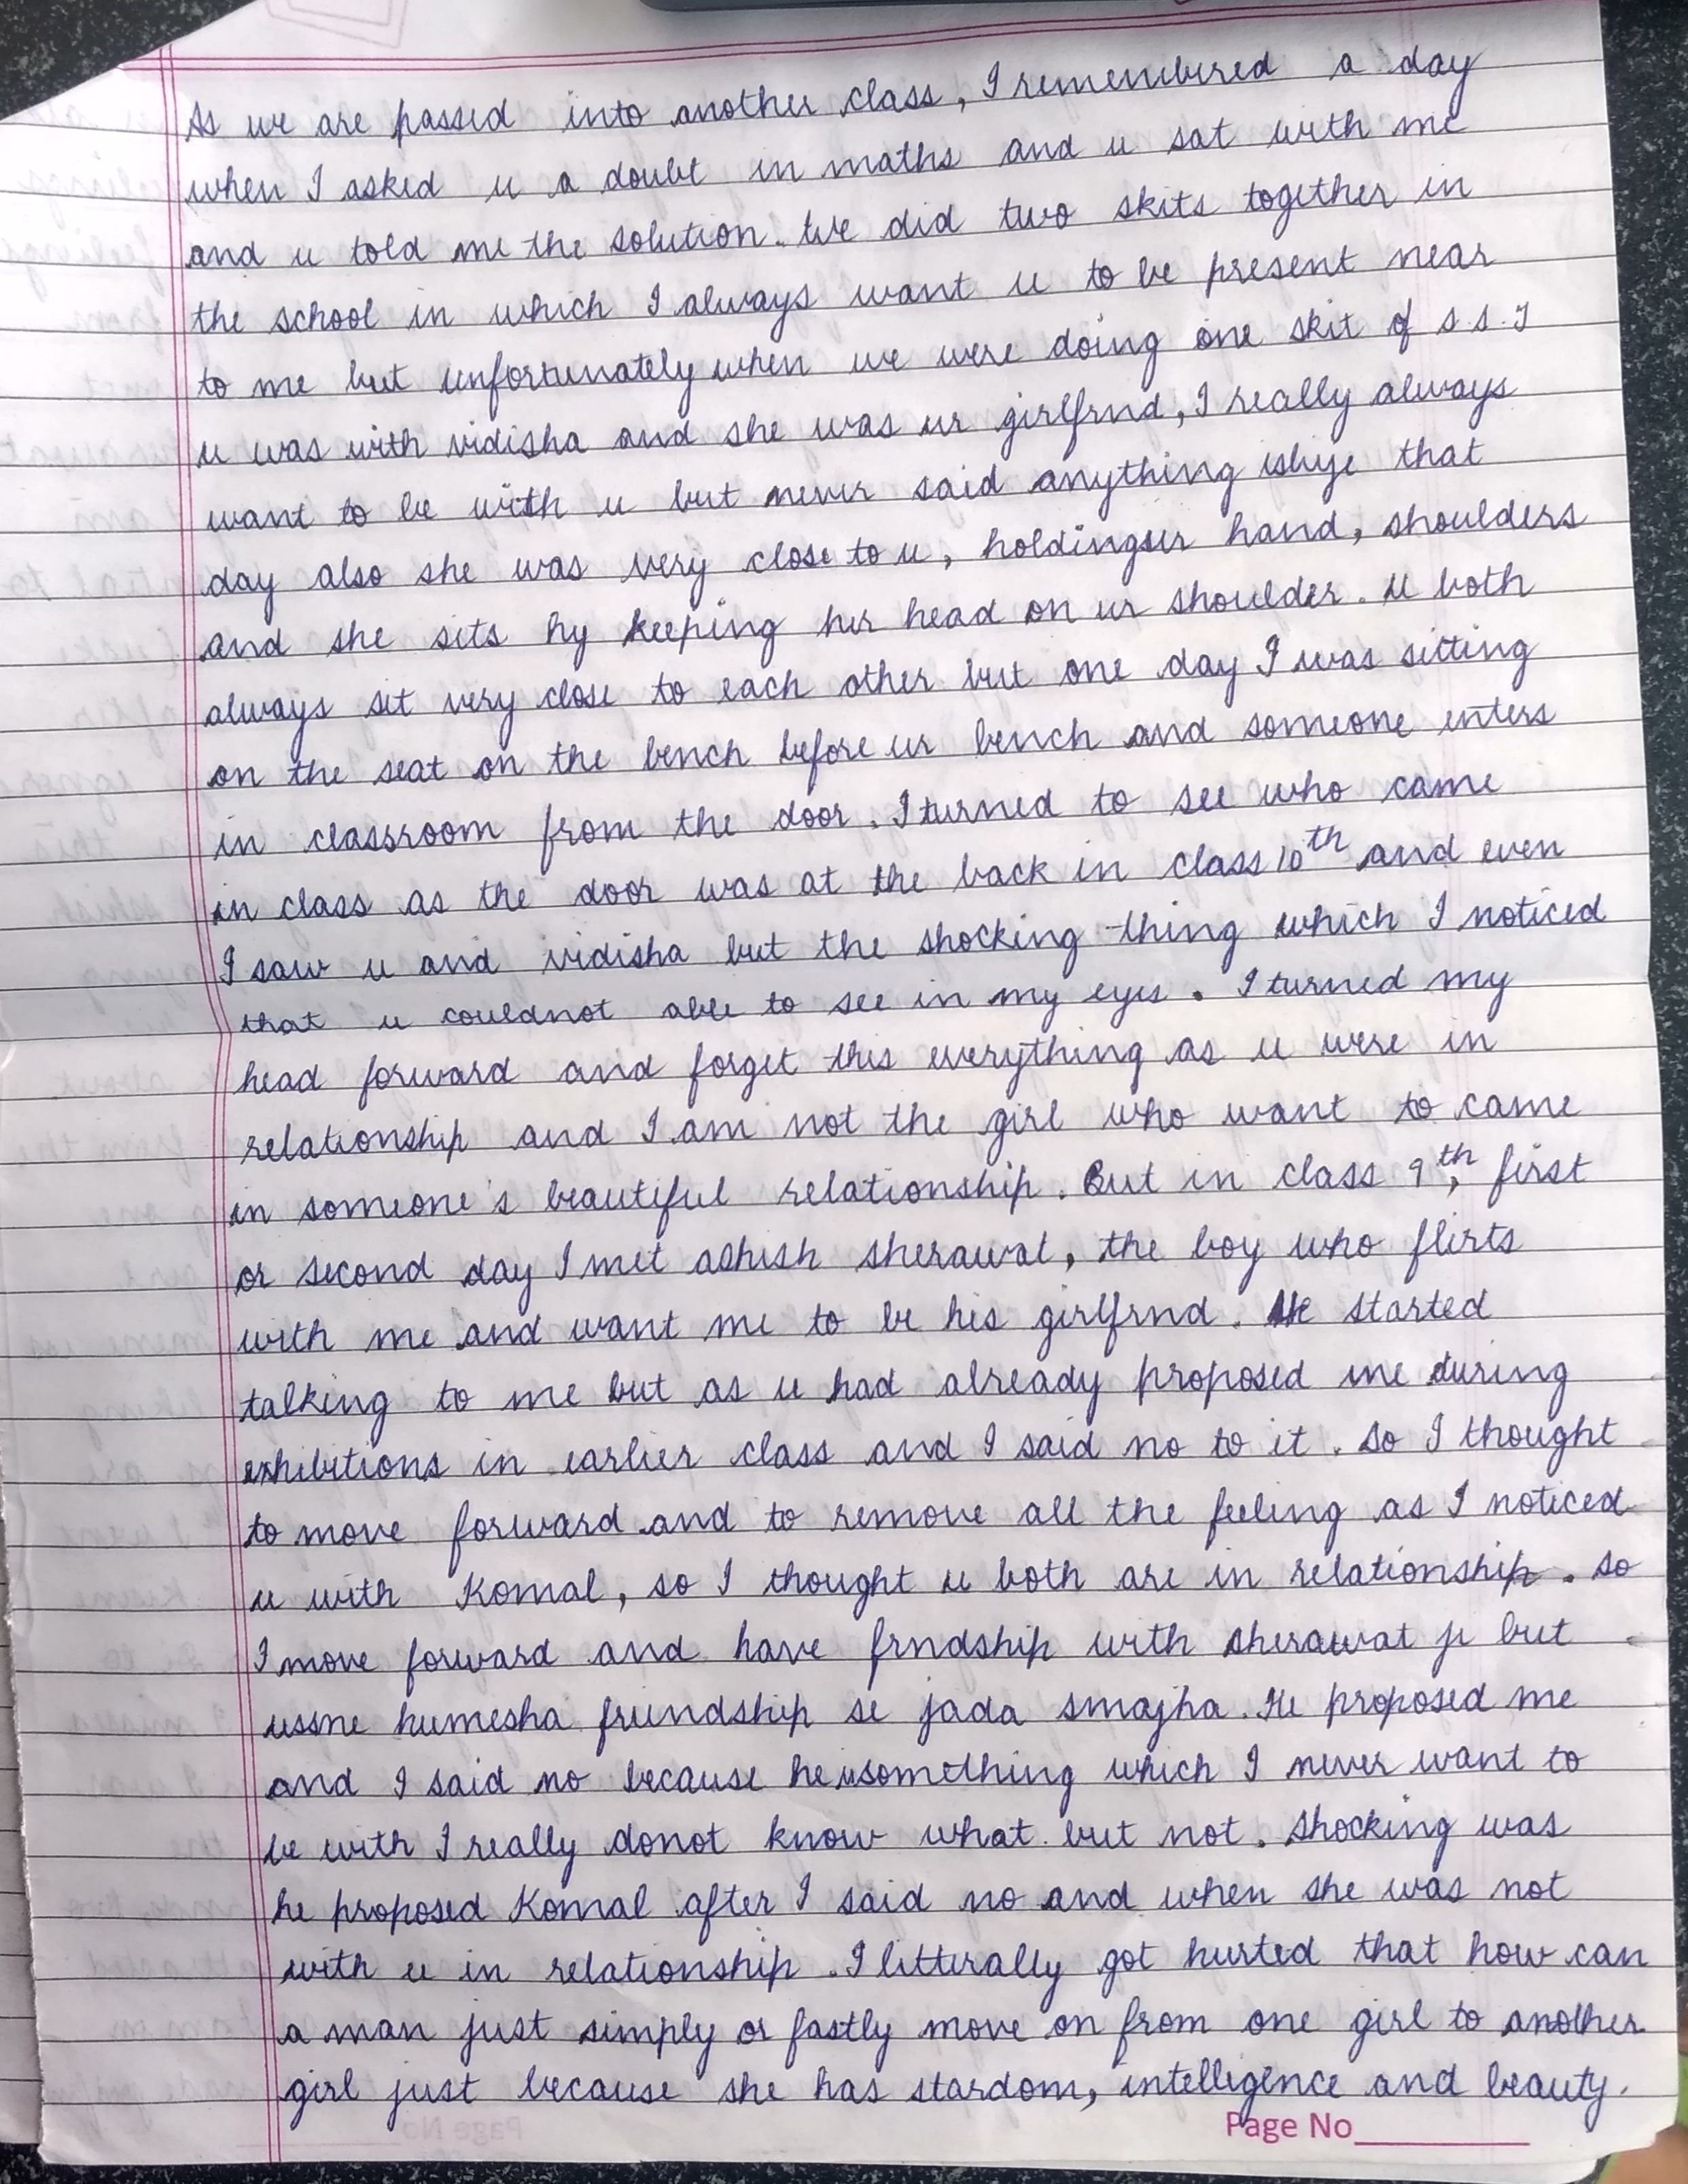 As we are passed into another class, I remembered a day
when I asked u a doubt in maths and u sat with me
and u told me the solution. We did two skits together in
the school in which I always want u to be present near
to me but unfortunately when we were doing one skit of s.s.J
u was with vidisha and she was ur girlfrnd, I really always
want to be with u but never said anything that
day also she was very close to u, holdingur hand, shoulders
and she sits by keeping her head on ur shoulder. U both
always sit very close to each other but one day I was sitting
on the seat on the bench before ur bench and someone enters
in classroom from the door. I turned to see who came
in class as the door was at the back in class 10th and even
I saw u and vidisha but the shocking thing which I noticed
that u couldnot able to see in my eyes. I turned my
head forward and forget this everything as u were in
relationship and I am not the girl who want to came
in someone's beautiful relationship. But in class 9th, first
or second day I met ashish sherawat, the boy who flirts
with me and want me to be his girlfrnd. He started
talking to me but as u had already proposed me during
exhibitions in earlier class and I said no to it. So I thought
to move forward and to remove all the feeling as I noticed
u with Komal, so I thought u both are in relationship. So
I move forward and have frndship with sherawat ji but
ussne humesha friendship se jada smajha. He proposed me
and I said no because he is something which I never want to
be with I really donot know what but not. Shocking was
he proposed Komal after I said no and when she was not
with u in relationship. I litterally got hurted that how can
a man just simply or fastly move on from one girl to another
girl just because she has stardom, intelligence and beauty.
Page No